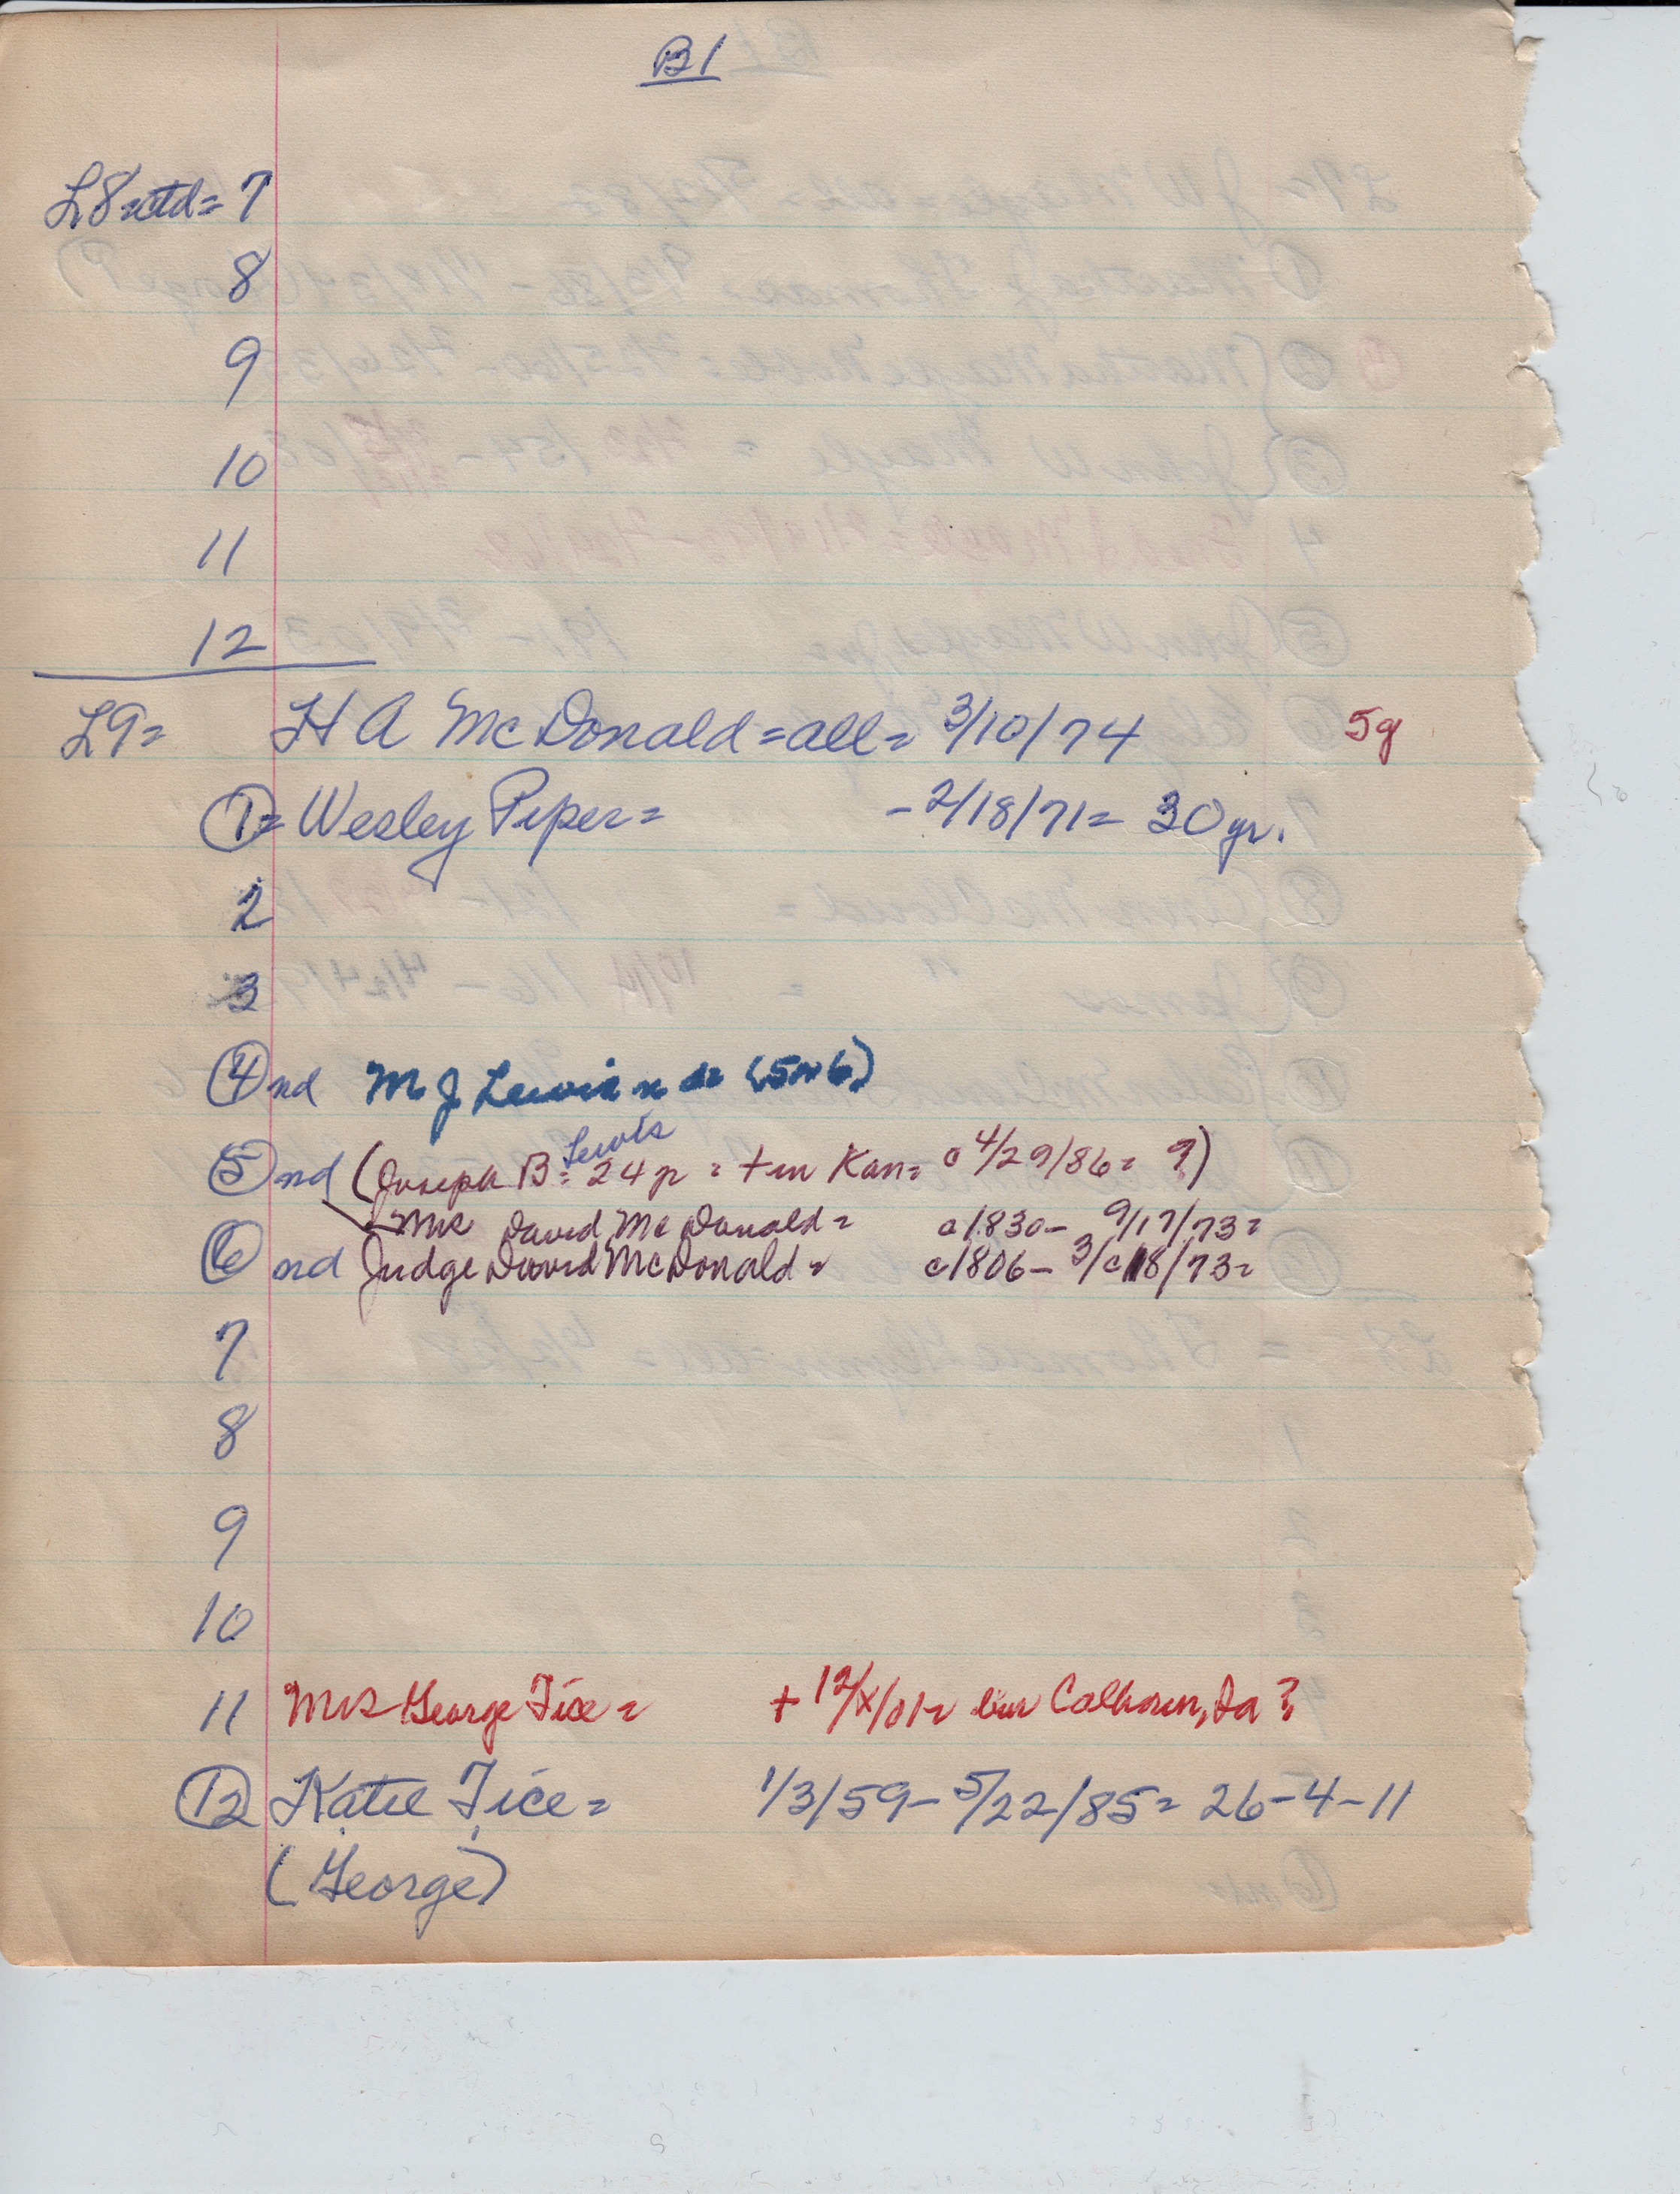 B1
L8=ctd= 7
8
9
10
11
12
L9= H A McDonald=all= 3/10/74 5g
1= Wesley Piper= -2/18/71= 30 yr.
2
3
4 nd M J Lewis n d= (5 or 6)
Lewis
5 nd (Joseph B= 24 yr = + in Kan= c 4/29/86= ?)
Mrs David McDonald= c1830- 9/17/73=
6 nd Judge David McDonald= c1806- 3/c18/73=
7
8
9
10
11 Mrs George Tice= + 12/x/01= bur Calhoun, Ia ?
12 Katie Tice= 1/3/59-5/22/85= 26-4-11
(George)